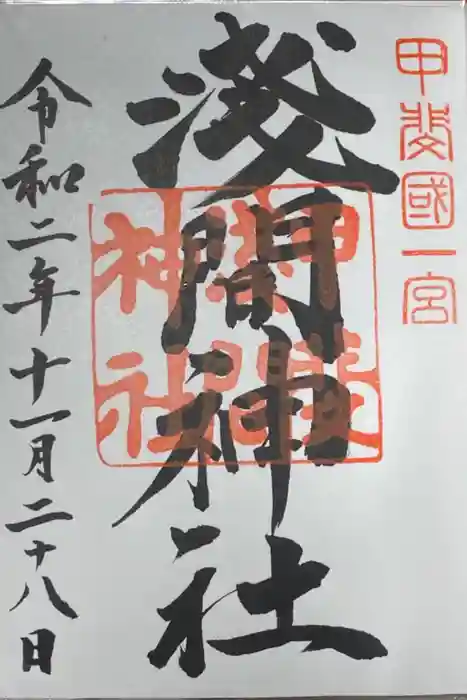 甲斐國一宮
淺間神社
神社
令和二年十一月二十八日